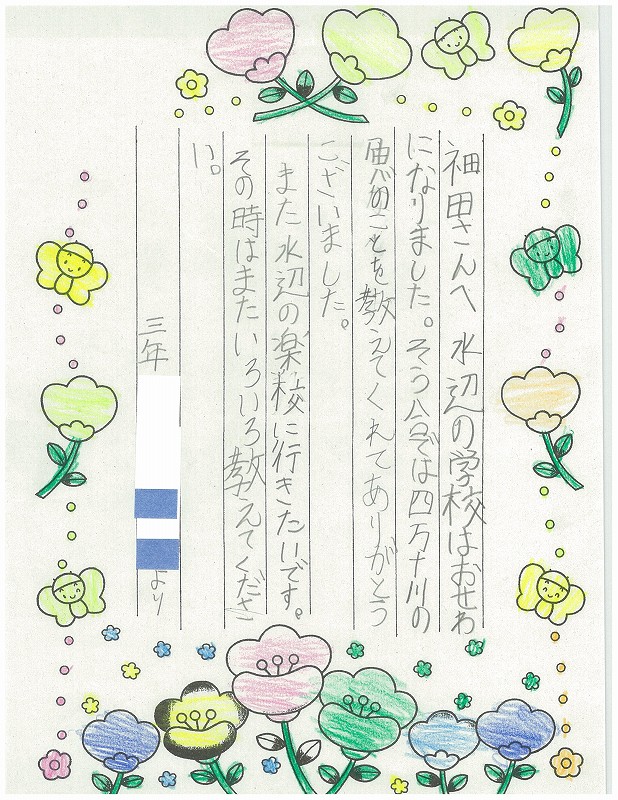 袖田さんへ 水辺の学校はおせわ
になりました。そう合では四万十川の
魚のことを教えてくれてありがとう
ございました。
また水辺の楽校に行きたいです。
その時はまたいろいろ教えてくださ
い。
三年
より